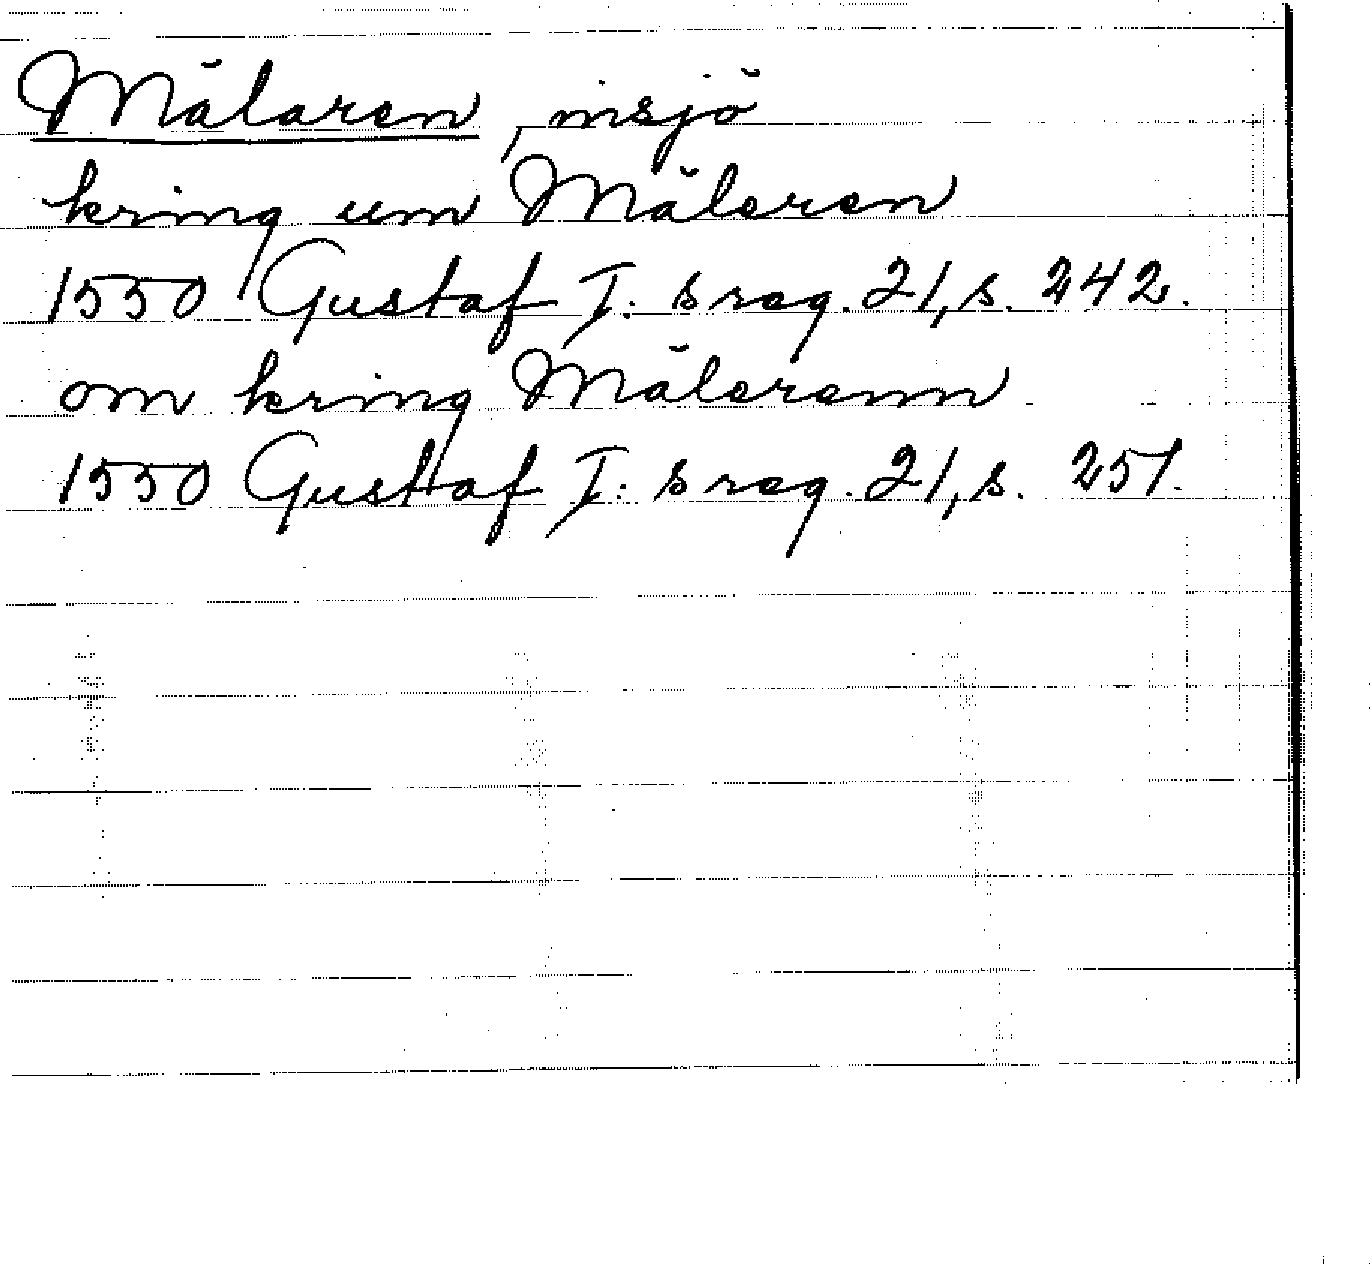 Mälaren, insjö
kring um Mäleren
1550 Gustaf I:s reg. 21, s. 242.
om kring Mälerenn
1550 Gustaf I:s reg. 21, s. 251.